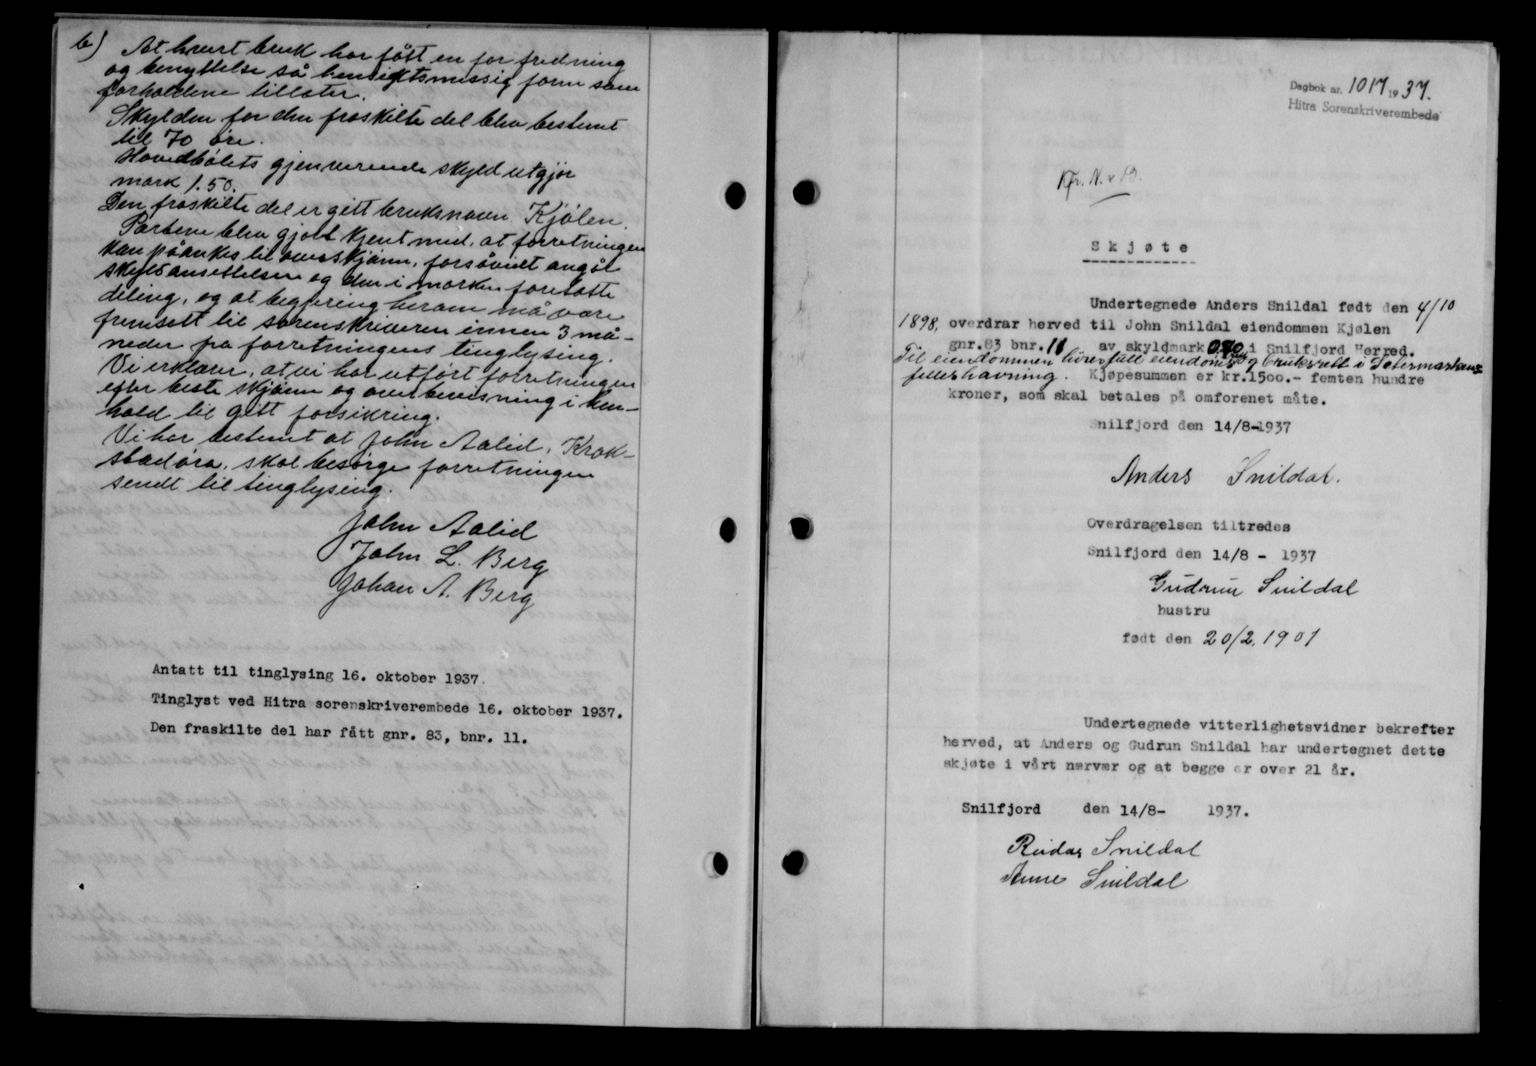 b) At hvert bruk har fått en for fredning
og benyttelse så hensigtsmessig form som
forholdene tillater.
Skylden for den fraskilte del blev bestemt
til 70 øre.
Hovedbølets gjenværende skyld utgjør
mark 1.50.
Den fraskilte del er gitt bruksnavn Kjølen.
Partene blev gjort kjent med, at forretningen
kan påankes til overskjønn, forsåvidt angår
skyldansettelsen og den i marken foretatte
deling, og at begjæring herom må være
fremsett til sorenskriveren innen 3 må-
neder fra forretningens tinglysing.
Vi erklærer, at vi har utført forretningen
efter beste skjønn og overbevisning i hen-
hold til gitt forsikring.
Vi har bestemt at John Aalid, Krok-
stadøra, skal besørge forretningen
sendt til tinglysing.
John Aalid
John L. Berg
Johan A. Berg
Antatt til tinglysing 16. oktober 1937.
Tinglyst ved Hitra sorenskriverembede 16. oktober 1937.
Den fraskilte del har fått gnr. 83, bnr. 11.
Dagbok nr. 1017 1937.
Hitra Sorenskriverembede
Skjøte
Undertegnede Anders Snildal født den 4/10
1898, overdrar herved til John Snildal eiendommen Kjølen
gnr.83 bnr. 11 av skyldmark 0.70 i Snilfjord Herred.
Til eiendommen hører full eiendoms og bruksrett i Setermarkens
felleshavning. Kjøpesummen er kr.1500.- femten hundre
kroner, som skal betales på omforenet måte.
Snilfjord den 14/8-1937
Anders Snildal.
Overdragelsen tiltredes
Snilfjord den 14/8 - 1937
Gudrun Snildal
hustru
født den 20/2, 1901
Undertegnede vitterlighetsvidner bekrefter
herved, at Anders og Gudrun Snildal har undertegnet dette
skjøte i vårt nærvær og at begge er over 21 år.
Snilfjord den 14/8- 1937.
Reidar Snildal
Anne Snildal